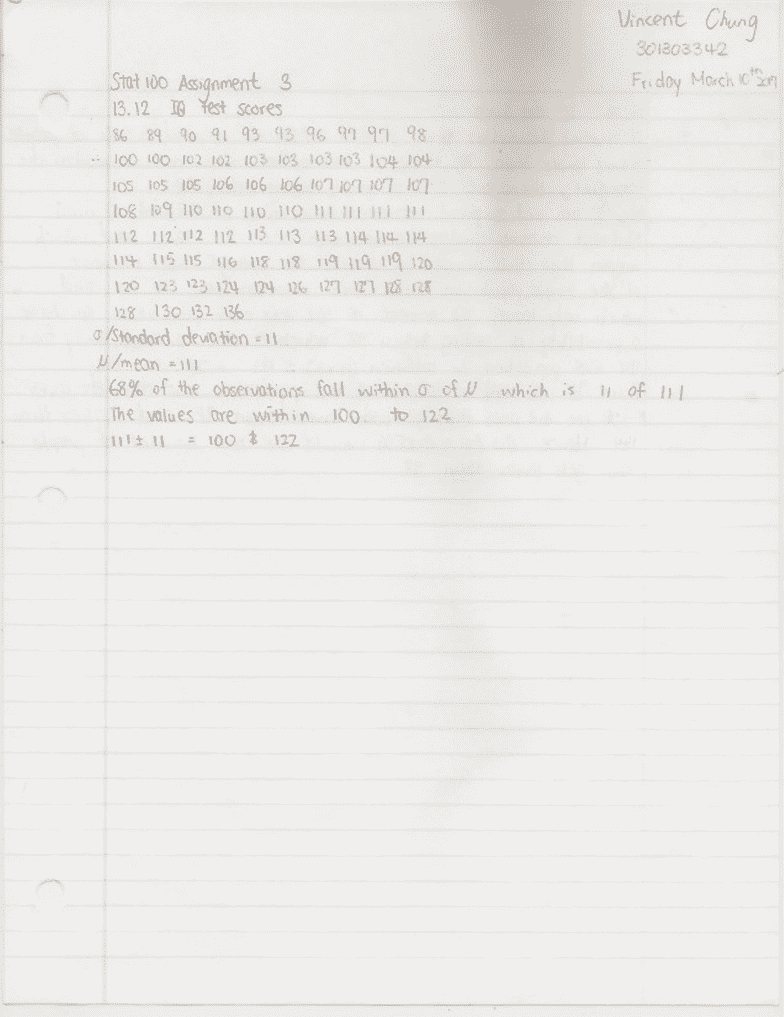 Vincent Chung
301303342
Friday March 10th 2017
Stat 100 Assignment 3
13.12 IQ Test scores
86 89 90 91 93 93 96 97 97 98
100 100 102 102 103 103 103 103 104 104
105 105 105 106 106 106 107 107 107 107
108 109 110 110 110 110 111 111 111 111
112 112 112 112 113 113 113 114 114 114
114 115 115 116 118 118 119 119 119 120
120 123 123 124 124 126 127 127 128 128
128 130 132 136
σ/Standard deviation = 11
μ/mean = 111
68% of the observations fall within σ of μ which is 11 of 111
The values are within 100 to 122
111 ± 11 = 100 & 122